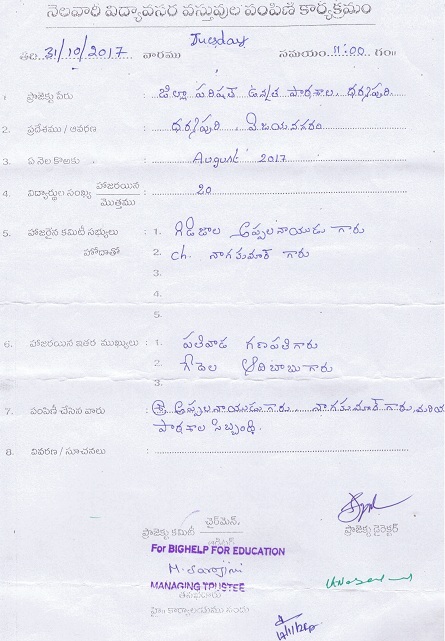 నెలవారీ విద్యావసర వస్తువుల పంపిణీ కార్యక్రమం
తేది. 31/10/2017 వారము Tuesday సమయం. 11:00 గం॥
1. ప్రాజెక్టు పేరు : జిల్లా పరిషత్ ఉన్నత పాఠశాల, ధర్మపురి
2. ప్రదేశము / ఆవరణ : ధర్మపురి, విజయనగరం
3. ఏ నెల కొఱకు : August 2017
4. విద్యార్థుల సంఖ్య హాజరయిన మొత్తము : 20
5. హాజరైన కమిటీ సభ్యులు హోదాతో : 1. గిడిజాల అప్పలనాయుడు గారు
2. ch. నాగకుమార్ గారు
3.
4.
5.
6. హాజరయిన ఇతర ముఖ్యులు : 1. పతివాడ గణపతి గారు
2. గేదెల ఆదిబాబు గారు
3.
7. పంపిణీ చేసిన వారు : శ్రీ అప్పలనాయుడు గారు నాగకుమార్ గారు, మరియు
పాఠశాల సిబ్బంది.
8. వివరణ / సూచనలు :
ప్రాజెక్టు కమిటీ ఛైర్మెన్
ప్రాజెక్టు డైరెక్టర్
For BIGHELP FOR EDUCATION
M. Sarojini
MANAGING TRUSTEE